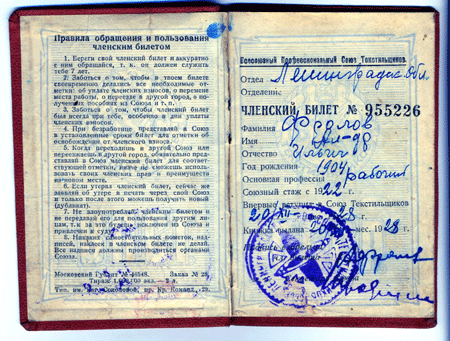 Правила обращения и пользования
членским билетом
1. Береги свой членский билет и аккуратно
с ним обращайся, т. к. он должен служить
тебе 7 лет.
2. Заботься о том, чтобы в твоем билете
своевременно делались все необходимые отмет-
ки: об уплате членских взносов, о перемене
места работы, о переезде в другой город, о по-
лученных пособиях из Союза и т. п.
3. Заботься о том, чтобы членский билет
был всегда при тебе, особенно в дни уплаты
членских взносов.
4. При безработице представляй в Союз
в установленные сроки билет для отметки об
освобождении от членского взноса.
5. Когда переходишь в другой Союз или
переезжаешь в другой город, обязательно пред-
ставляй в Союз членский билет для соответ-
ствующей отметки, иначе не сможешь использо-
вать своих членских прав и преимуществ
научного
6. Если утерял членский билет, сейчас же
заявляй об утере в печать через свой Союз
и только после этого можешь получить новый
(дубликат).
7. Не злоупотребляй членским билетом и
не передавай его для пользования другим ли-
цам, т. к. за это будешь исключен из Союза и
привлечен к суду.
8. Никаких самостоятельных пометок, над-
писей, наклеек в членском билете не делай.
Все надписи должен производить органами
Союза.
Московский № 46548. Заказ № 28
Тираж 100 экз.
Тип. им. Сосковой, пр. Кр. Команд., 29.
Всесоюзный Профессиональный Союз Текстильщиков.
Отдел Ленинградск. обл.
Отделение
ЧЛЕНСКИЙ БИЛЕТ № 955226
Фамилия Фролов
Имя
Отчество Ильич
Год рождения 1904
Основная профессия рабочий
Союзный стаж с 1922 г.
Впервые вступил в Союз Текстильщиков
20/XII 28 г.
Книжка выдана 20 мес. 1928